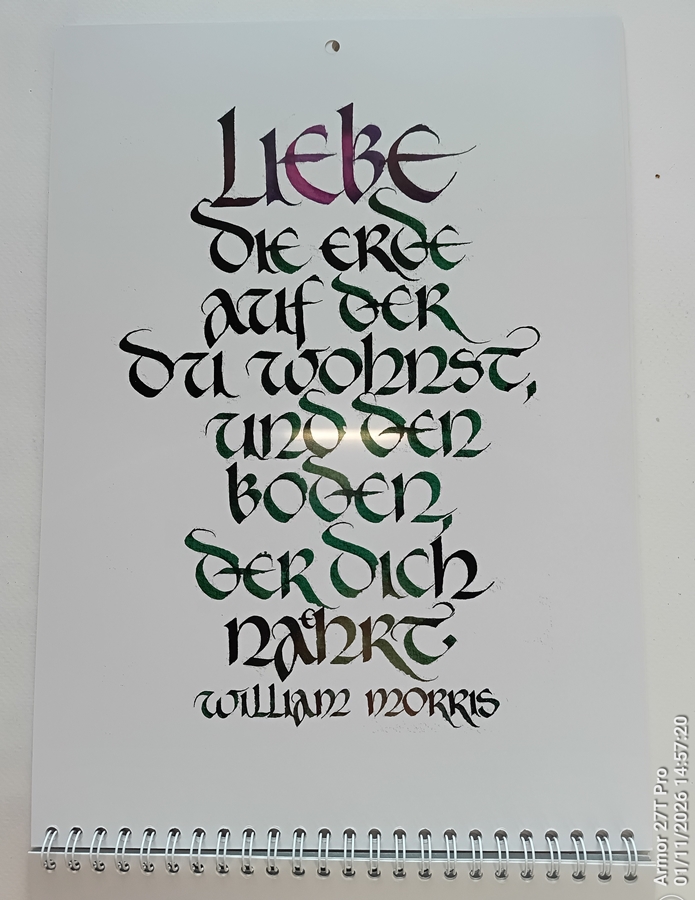 Liebe
die erde
auf der
du wohnst,
und den
boden,
der dich
naehrt.
William Morris
Armor 27T Pro
01/11/2026 14:57:20